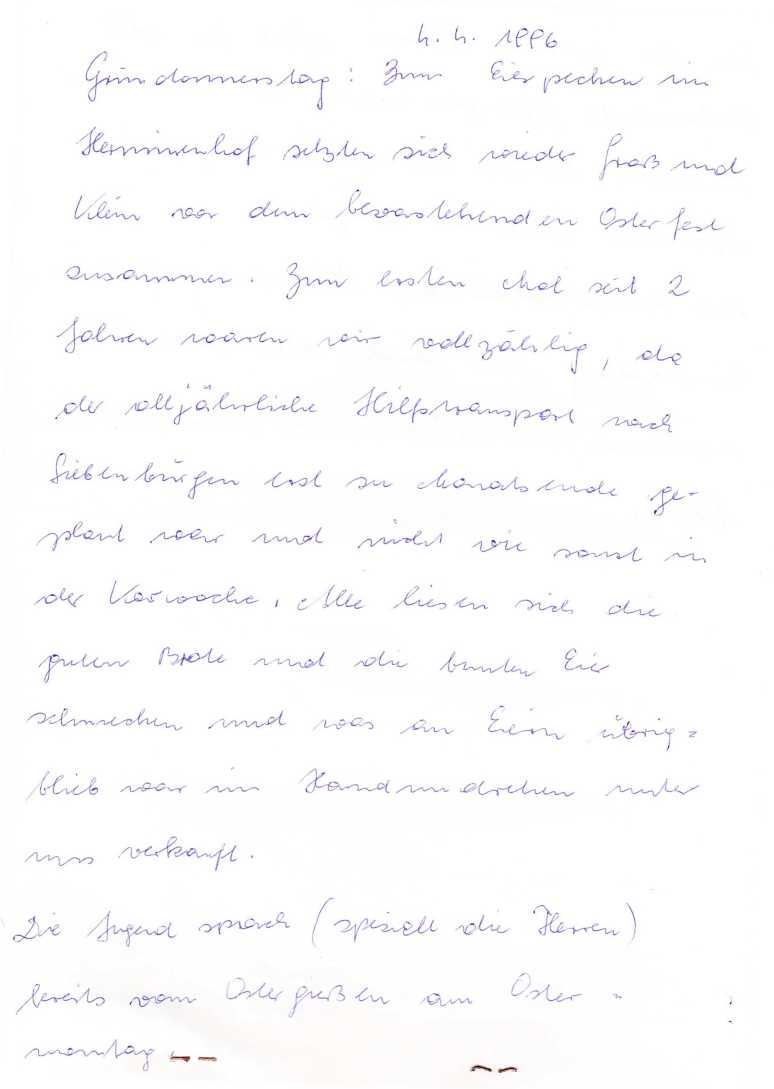 4. 4. 1996
Gründonnerstag: Zum Eierpecken im
Herminenhof setzten sich wieder Groß und
Klein vor dem bevorstehenden Osterfest
zusammen. Zum ersten Mal seit 2
Jahren waren wir vollzählig, da
der alljährliche Hilfstransport nach
Siebenbürgen erst zu Monatsende ge-
plant war und nicht wie sonst in
der Karwoche. Alle liesen sich die
guten Brote und die bunten Eier
schmecken und was an Eiern übrig=
blieb war im Handumdrehen unter
uns verkauft.
Die Jugend sprach (speziell die Herren)
bereits vom Ostergießen am Oster=
montag.